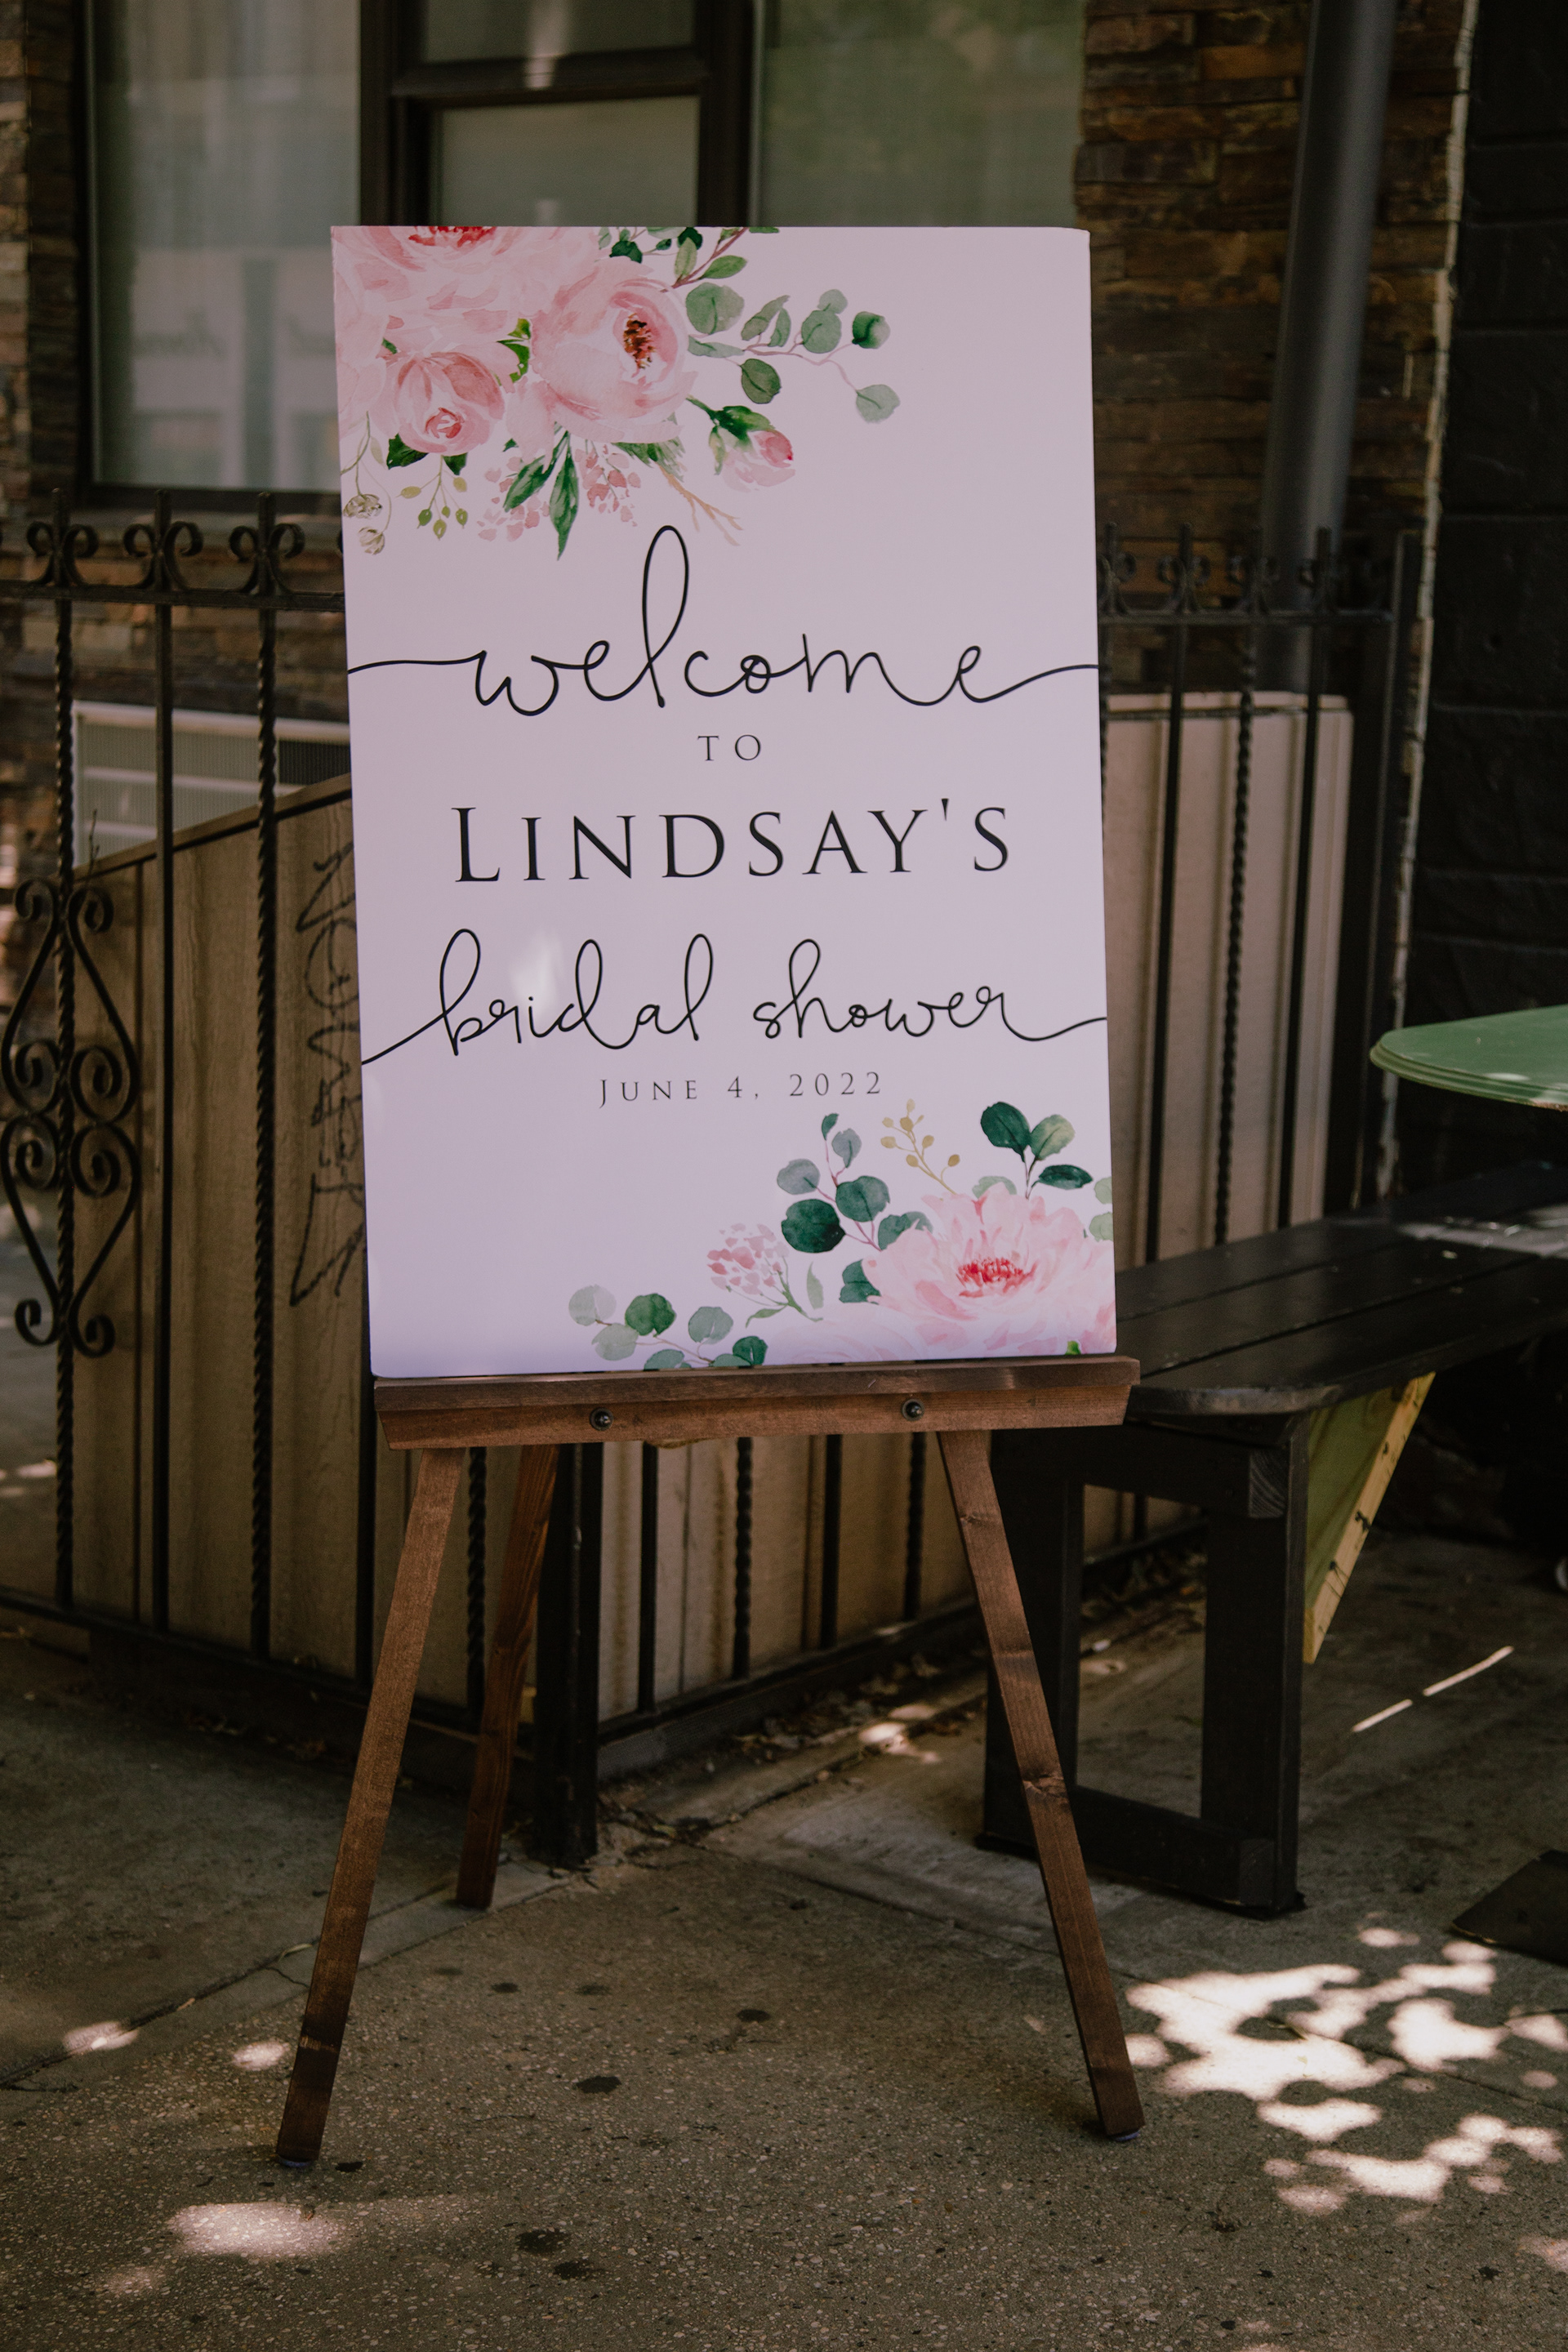 welcome
TO
LINDSAY'S
bridal shower
JUNE 4, 2022